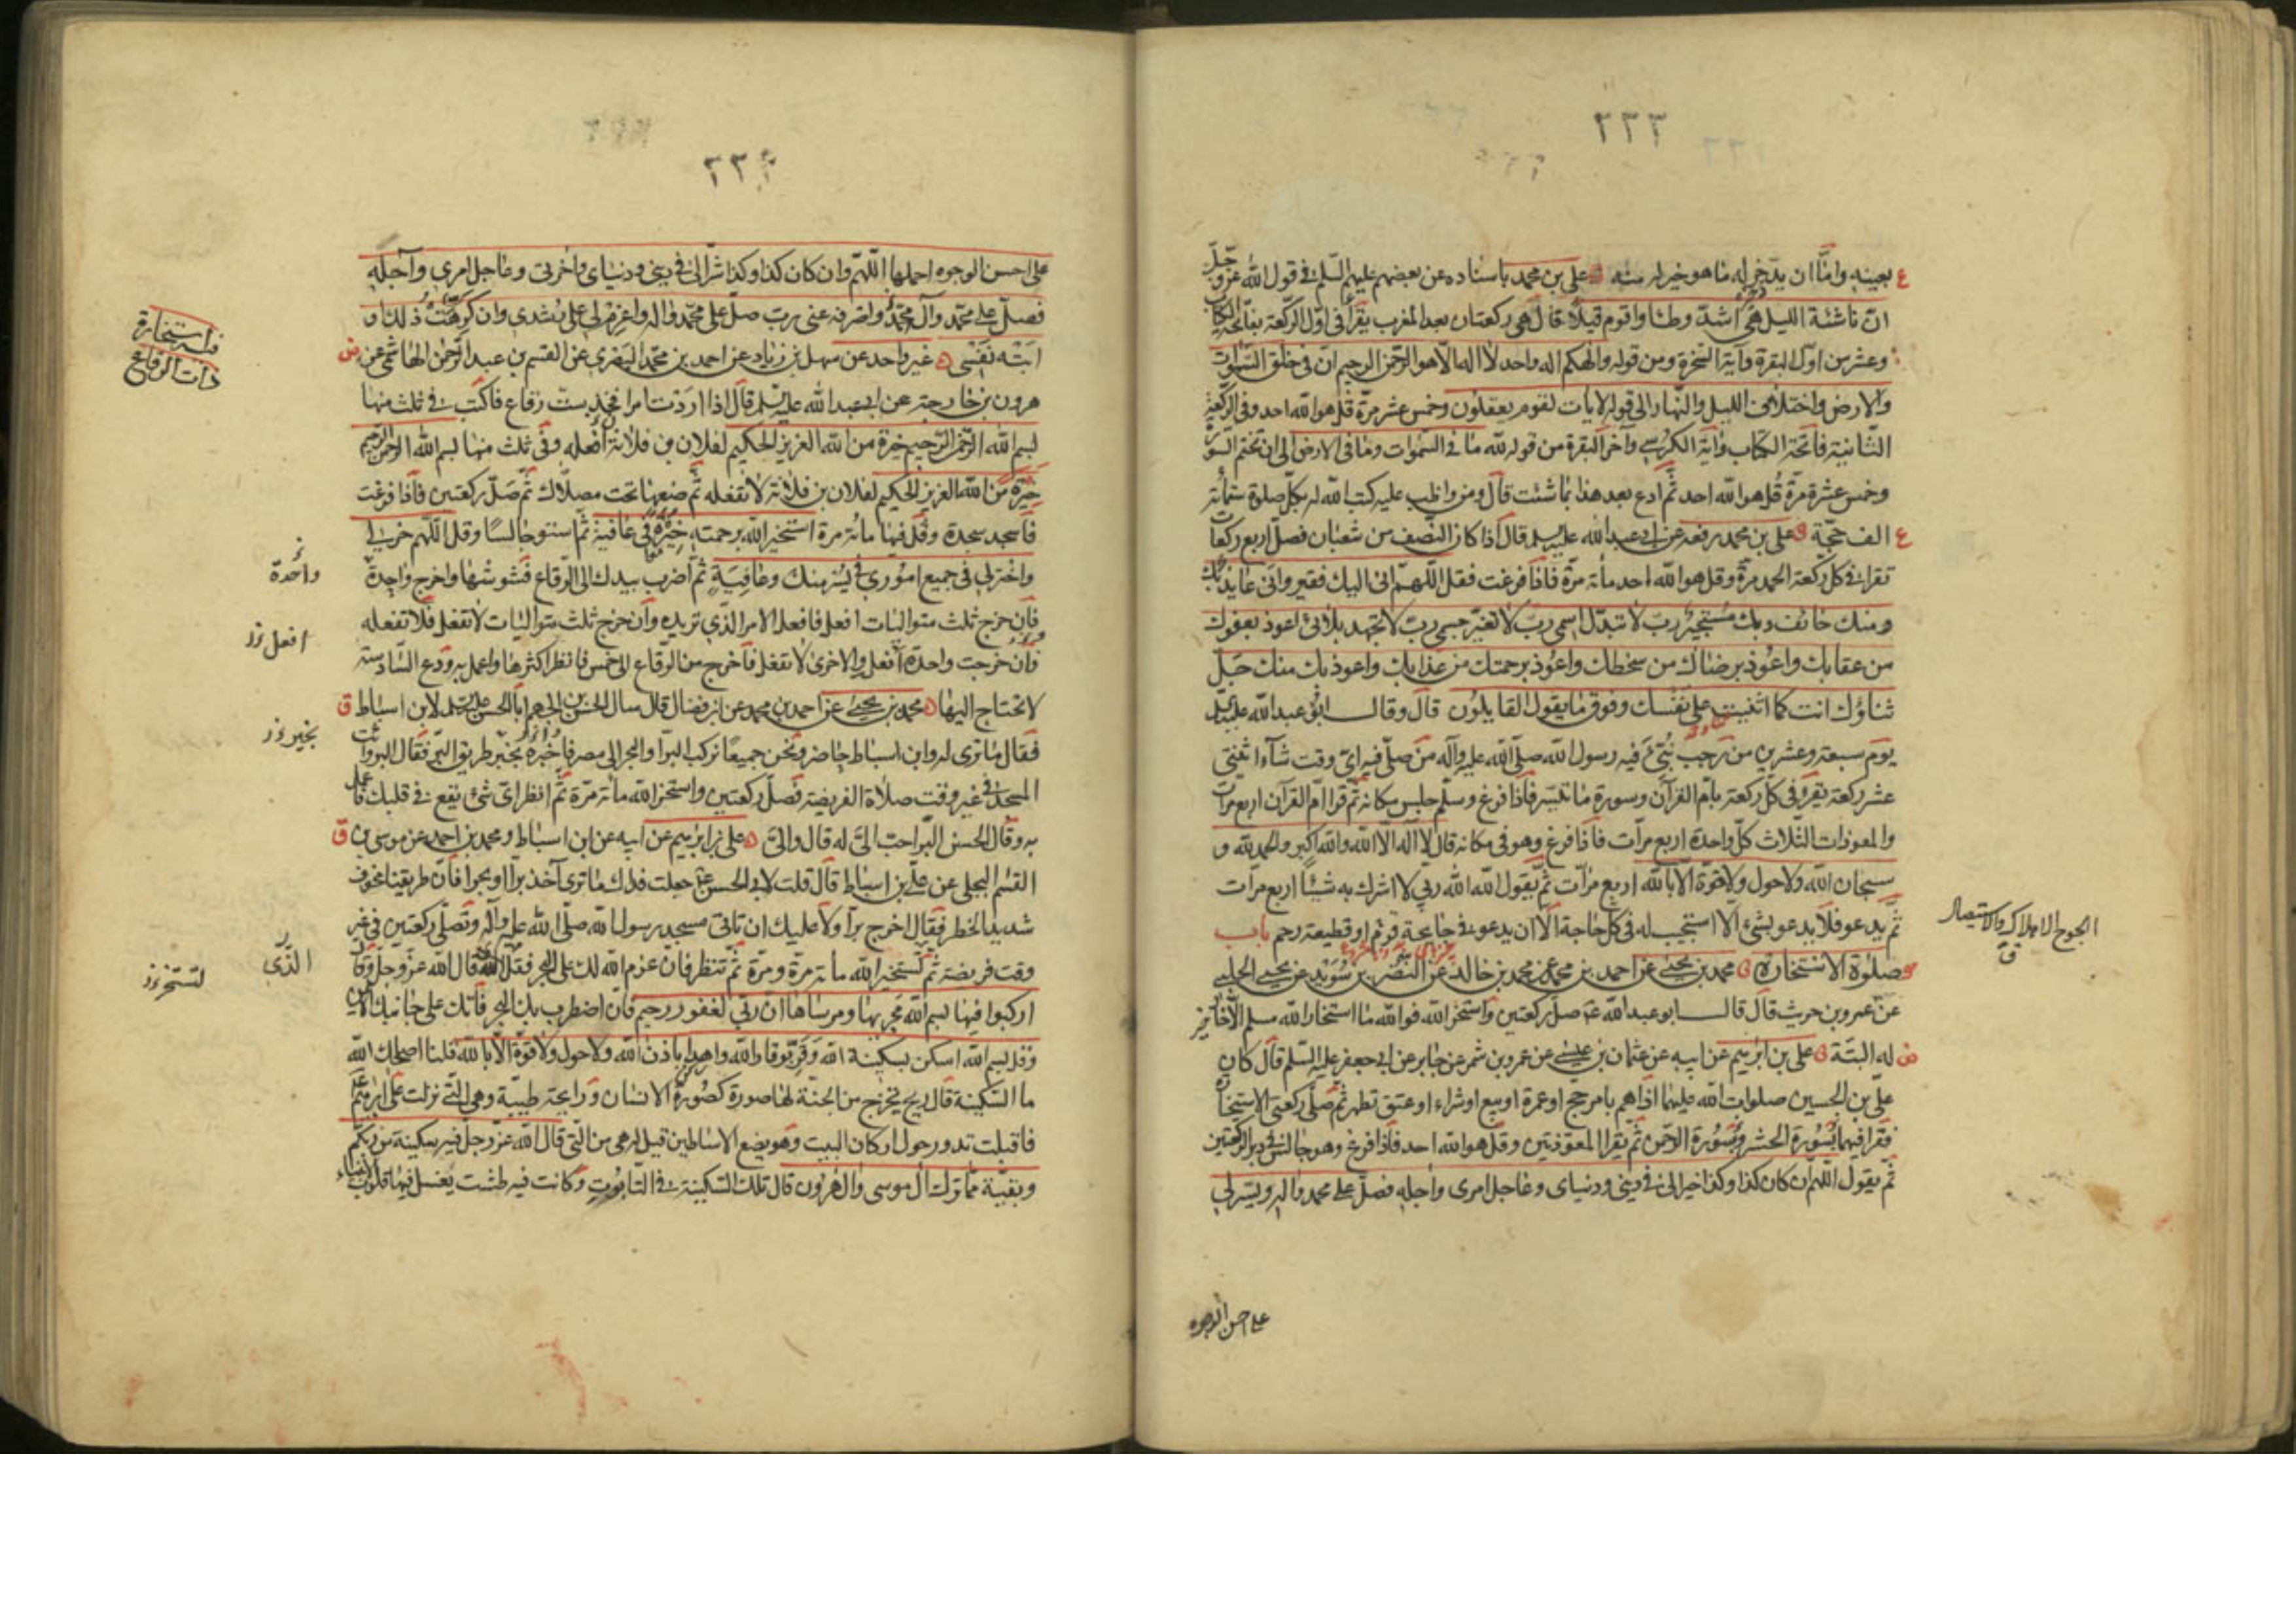 ٣٣٣
بعينه واما ان يدخر له ما هو خير له منه علي بن محمد باسناده عن بعضهم عليهم السلم في قول الله عز وجل
ان ناشئة الليل هي اشد وطئا واقوم قيلا قال هي ركعتان بعد المغرب يقرأ في اول الركعة بفاتحة الكتاب
وعشر من اول البقرة وآية السخرة ومن قوله والهكم اله واحد لا اله الا هو الرحمن الرحيم ان في خلق السموات
والارض واختلاف الليل والنهار الى قوله لايات لقوم يعقلون وخمس عشر مرة قل هو الله احد وفي الركعة
الثانية فاتحة الكتاب وآية الكرسي وآخر البقرة من قوله لله ما في السموات وما في الارض الى ان تختم السورة
وخمس عشرة مرة قل هو الله احد ثم ادع بعد هذا بما شئت قال ومن واظب عليه كتب الله له بكل صلوة ستمأة
الف حجة علي بن محمد رفعه عن ابي عبد الله عليه السلم قال اذا كان النصف من شعبان فصل اربع ركعات
تقرا في كل ركعة الحمد مرة وقل هو الله احد مأة مرة فاذا فرغت فقل اللهم اني اليك فقير واني عايذ بك
ومنك خائف وبك مستجير رب لا تبدل اسمي رب لا تغير جسمي رب لا تجهد بلائي اعوذ بعفوك
من عقابك واعوذ برضاك من سخطك واعوذ برحمتك من عذابك واعوذ بك منك جل
ثناؤك انت كما اثنيت على نفسك وفوق ما يقول القايلون قال وقال ابو عبد الله عليه السلم
يوم سبعة وعشرين من رجب نبئ فيه رسول الله صلى الله عليه وآله من صلى فيه اي وقت شآء اثنتي
عشر ركعة يقرء في كل ركعة بام القرآن وسورة ما تيسر فاذا فرغ وسلم جلس مكانه ثم قرا ام القرآن اربع مرات
والمعوذات الثلاث كل واحدة اربع مرآت فاذا فرغ وهو في مكانه قال لا اله الا الله والله اكبر والحمد لله و
سبحان الله ولا حول ولا قوة الا بالله اربع مرات ثم يقول الله الله ربي لا اشرك به شيئا اربع مرآت
ثم يدعو فلا يدعو بشيء الا استجيب له في كل حاجة الا ان يدعو في جايحة قوم او قطيعة رحم باب
صلوة الاستخارة محمد بن يحيى عن احمد بن محمد عن محمد بن خالد عن النضر بن سويد عن يحيى الحلبي
عن عمرو بن حريث قال قال ابو عبد الله ع صل ركعتين واستخر الله فوالله ما استخار الله مسلم الا خار
له البتة علي بن ابرهيم عن ابيه عن عثمان بن عيسى عن عمرو بن شمر عن جابر عن ابي جعفر عليه السلم قال كان
علي بن الحسين صلوات الله عليهما اذا هم بامر حج او عمرة او بيع او شراء او عتق تطهر ثم صلى ركعتي الاستخارة
فقرا فيهما بسورة الحشر وبسورة الرحمن ثم يقرا المعوذتين وقل هو الله احد فاذا فرغ وهو جالس في دبر الركعتين
ثم يقول اللهم ان كان كذا وكذا خيرا لي في ديني ودنياي وعاجل امري وآجله فصل على محمد وآله ويسره لي
على احسن الوجوه
٣٣٤
على احسن الوجوه اجملها اللهم وان كان كذا وكذا شرا لي في ديني ودنياي وآخرتي وعاجل امري وآجله
فصل على محمد وآل محمد واصرفه عني رب صل على محمد وآله واعزم لي على رشدي وان كرهت ذلك او
ابته نفسي غير واحد عن سهل بن زياد عن احمد بن محمد البصري عن القسم بن عبد الرحمن الهاشمي عن
هرون بن خارجة عن ابي عبد الله عليه السلم قال اذا اردت امرا فخذ ست رقاع فاكتب في ثلث منها
بسم الله الرحمن الرحيم خيرة من الله العزيز الحكيم لفلان بن فلانة افعله وفي ثلث منها بسم الله الرحمن الرحيم
خيرة من الله العزيز الحكيم لفلان بن فلانة لا تفعله ثم ضعها تحت مصلاك ثم صل ركعتين فاذا فرغت
فاسجد سجدة وقل فيها مائة مرة استخير الله برحمته خيرة في عافية ثم استو جالسا وقل اللهم خر لي
واختر لي في جميع اموري في يسر منك وعافية ثم اضرب بيدك الى الرقاع فشوشها واخرج واحدة
فان خرج ثلث متواليات افعل فافعل الامر الذي تريده وان خرج ثلث متواليات لا تفعل فلا تفعله
وان خرجت واحدة افعل والاخرى لا تفعل فاخرج من الرقاع الى خمس فانظر اكثرها واعمل به ودع السادسة
لا تحتاج اليها محمد بن يحيى عن احمد بن محمد عن ابن فضال قال سال الحسن بن الجهم ابا الحسن عليه السلم لابن اسباط
فقال ما ترى له وابن اسباط حاضر ونحن جميعا نركب البر او البحر الى مصر فاخبره بخير طريق البر فقال البر وائت
المسجد في غير وقت صلاة الفريضة فصل ركعتين واستخر الله مائة مرة ثم انظر اي شيء يقع في قلبك فاعمل
به وقال الحسن البر احب الي له قال والي علي بن ابرهيم عن ابيه عن ابن اسباط ومحمد بن احمد عن موسى بن
القسم البجلي عن علي بن اسباط قال قلت لابي الحسن ع جعلت فداك ما ترى آخذ برا او بحرا فان طريقنا مخوف
شديد الخطر فقال اخرج برا ولا عليك ان تاتي مسجد رسول الله صلى الله عليه وآله وتصلي ركعتين في غير
وقت فريضة ثم لتستخير الله مأة مرة ومرة ثم تنظر فان عزم الله لك على البحر فقل الذي قال الله عز وجل وقال
اركبوا فيها بسم الله مجريها ومرساها ان ربي لغفور رحيم فان اضطرب بك البحر فاتك على جانبك الايمن
وقل بسم الله اسكن بسكينة الله وقر بوقار الله واهدا باذن الله ولا حول ولا قوة الا بالله قلنا اصلحك الله
ما السكينة قال ريح يخرج من الجنة لها صورة كصورة الانسان ورايحة طيبة وهي التي نزلت على ابرهيم
فاقبلت تدور حول اركان البيت وهو يضع الاساطين قيل له هي من التي قال الله عز وجل فيه سكينة من ربكم
وبقية مما ترك آل موسى وآل هرون قال تلك السكينة في التابوت وكانت فيه طشت يغسل فيها قلوب الانبياء
الذي
واحدة